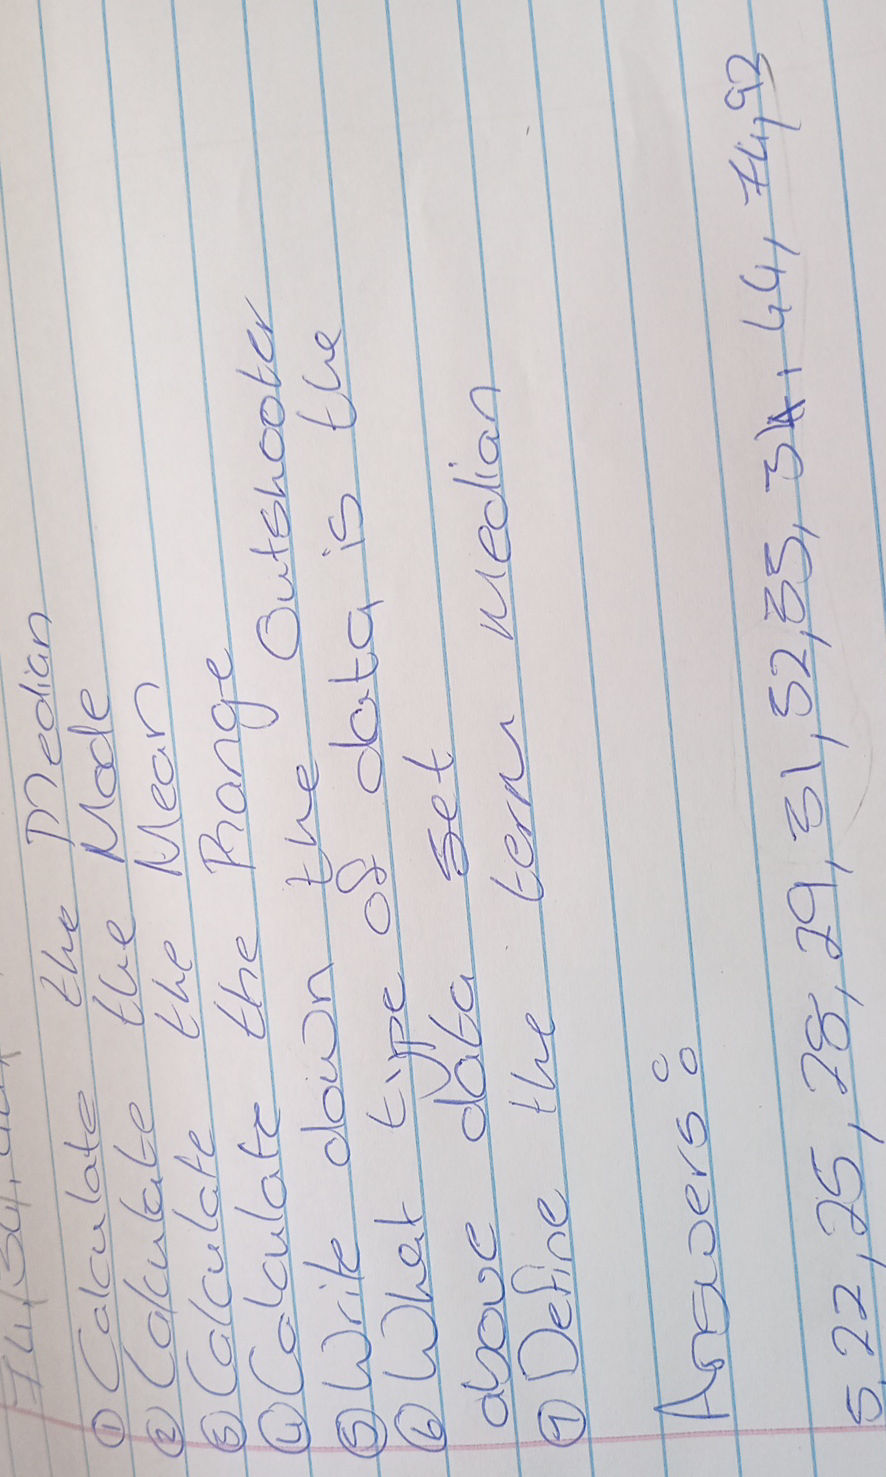 74,34,
① Calculate the Median
② Calculate the Mode
③ Calculate the Mean
④ Calculate the Range
⑤ Write down the Outshooter
⑥ What type of data is the
above data set
⑦ Define the term Median
Answers:
5, 22, 25, 28, 29, 31, 52, 35, 34, 44, 74, 92